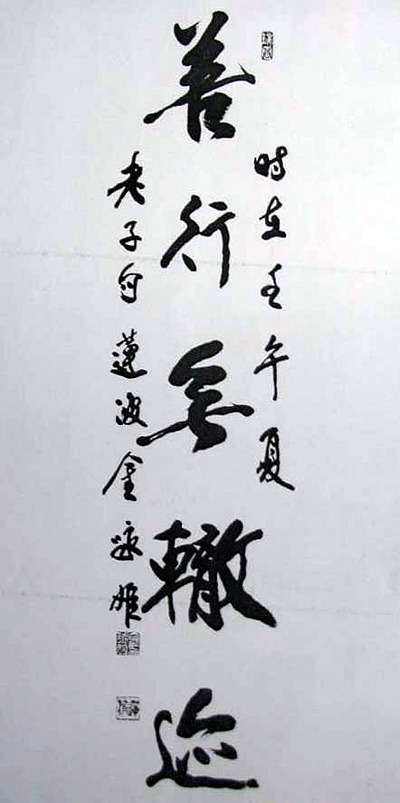 時在壬午夏
善行無轍迹
老子句 蓮波 金